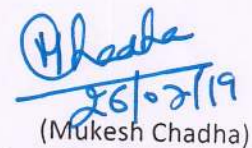 MChadha
26/02/19
(Mukesh Chadha)